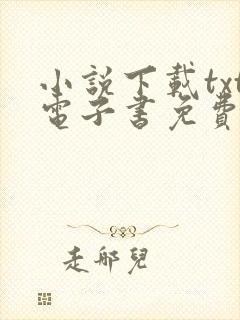 小說下載txt
電子書免費
走那兒